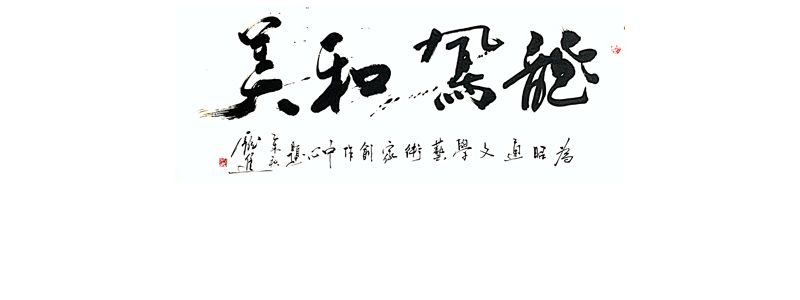 龍鳳和美
為昭通文學藝術家創作中心題